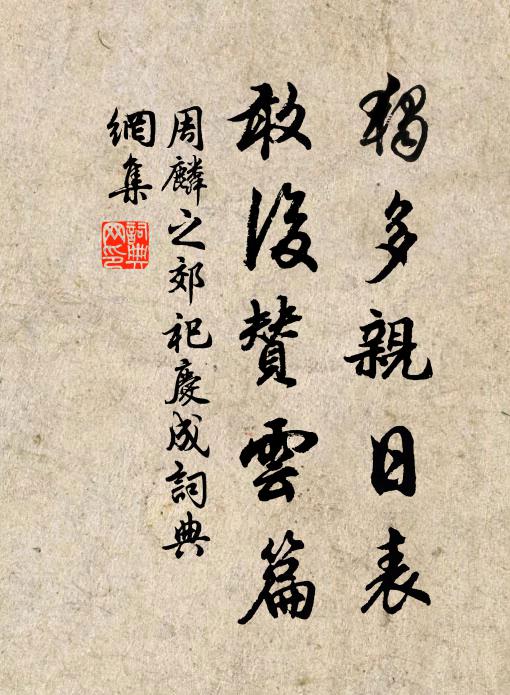 獨多親日表
敢後賛雲篇
周麟之郊祀慶成詞典
網集
詞典網印